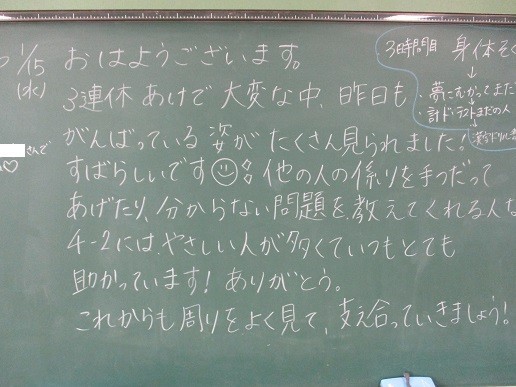 1/15
(水)
おはようございます。
3連休あけで大変な中、昨日も
がんばっている姿がたくさん見られました！
すばらしいです 他の人の係りを手つだって
あげたり、分からない問題を教えてくれる人な
4-2には、やさしい人が多くていつもとても
助かっています！ありがとう。
これからも周りをよく見て、支え合っていきましょう！
さんで
3時間目 身体そく
・夢にむかってまだ
・計ド・テストまだの人